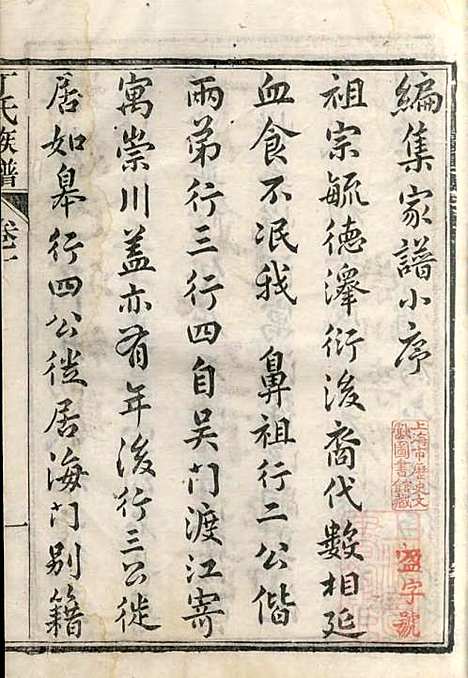 編集家譜小序
祖宗毓德澤衍後裔代數相延
血食不泯我 鼻祖行二公偕
兩弟行三行四自吴門渡江寄
寓崇川蓋亦有年後行三公徙
居如皋行四公徙居海門别籍
丁氏族譜
卷一
一
上海市歷史文
獻圖書館藏
盈字號